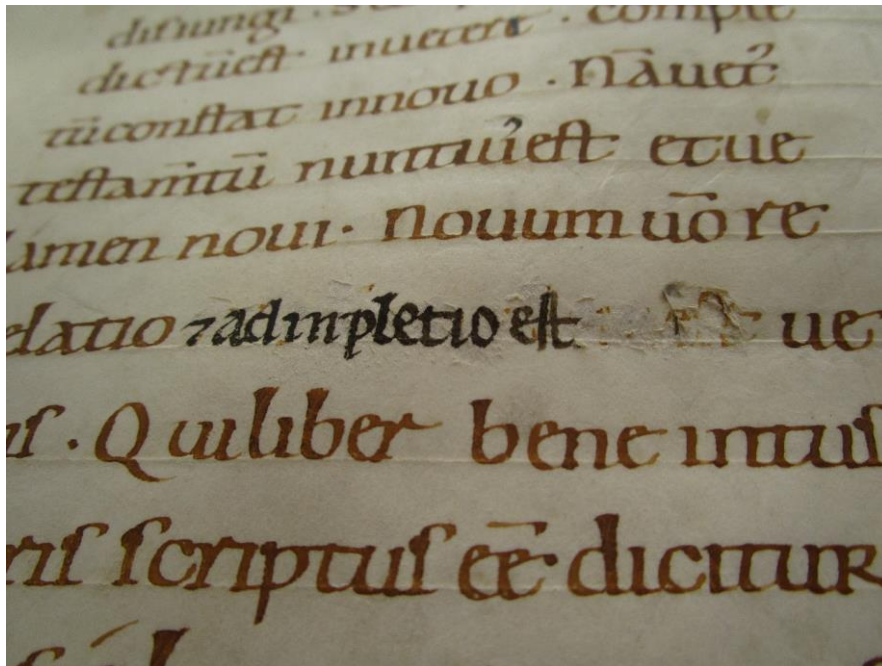 disiungi ·
dictūest inuenert · comple
tūconstat innouo · Nāuet᾽
testam̄tū nuntiu᾽est etue
lamen noui · Nouum uōre
elatio ⁊adinpletio est ue
us · Quiliber bene intus
ris scriptus eē dicitur